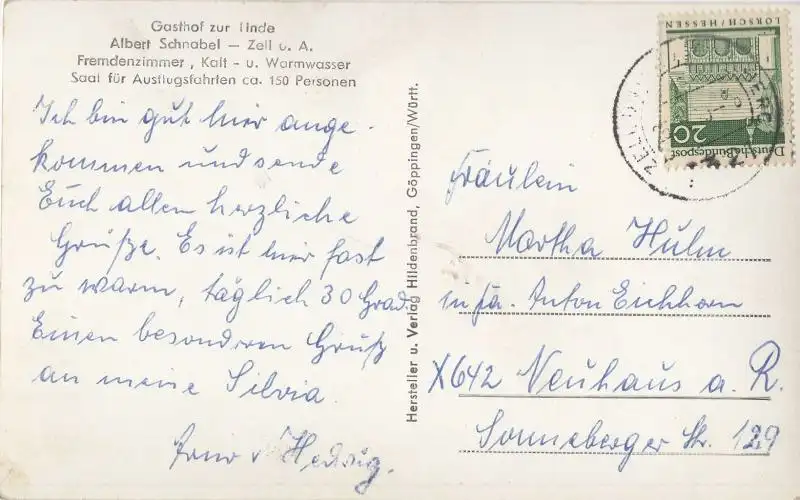 Gasthof zur Linde
Albert Schnabel — Zell u. A.
Fremdenzimmer, Kalt - u. Warmwasser
Saal für Ausflugsfahrten ca. 150 Personen
Ich bin gut hier ange-
kommen und sende
Euch allen herzliche
Grüße. Es ist hier fast
zu warm, täglich 30 Grad
Einen besonderen Gruß
an meine Silvia.
Hedwig.
Hersteller u. Verlag Hildenbrand, Göppingen/Württ.
LORSCH/HESSEN
20
Deutsche Bundespost
ZELL
Fräulein
Martha Hulm
in fa. Anton Eichhorn
X642 Neuhaus a. R.
Sonneberger Str. 129